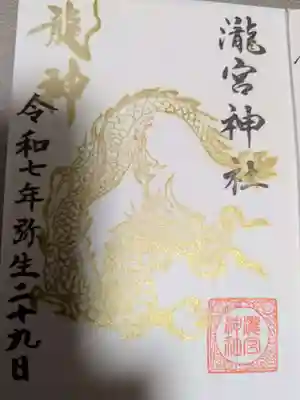 瀧宮神社
龍神
令和七年弥生二十九日
瀧宮
神社